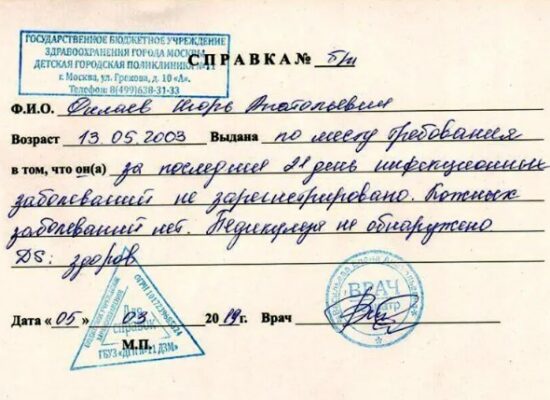 ГОСУДАРСТВЕННОЕ БЮДЖЕТНОЕ УЧРЕЖДЕНИЕ
ЗДРАВООХРАНЕНИЯ ГОРОДА МОСКВЫ
ДЕТСКАЯ ГОРОДСКАЯ ПОЛИКЛИНИКА №11
г. Москва, ул. Грекова, д. 10 «А».
Телефон: 8(499)638-31-33
СПРАВКА № б/н
Ф.И.О. Филаев Игорь Анатольевич
Возраст 13.05.2003 Выдана по месту требования
в том, что он(а) за последние 21 день инфекционных
заболеваний не зарегистрировано. Кожных
заболеваний нет. Педикулеза не обнаружено
DS: здоров
Дата « 05 » 03 2019г. Врач
М.П.
Для
справок
ГБУЗ «ДГП №11 ДЗМ»
ВРАЧ